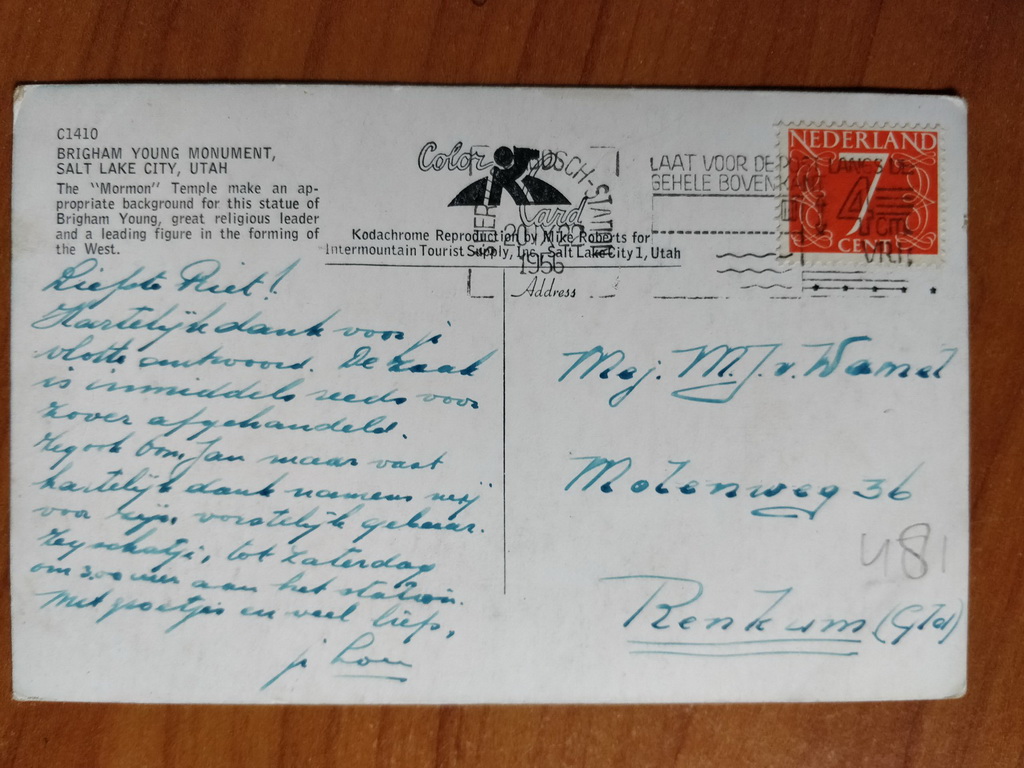 C1410
BRIGHAM YOUNG MONUMENT,
SALT LAKE CITY, UTAH
The "Mormon" Temple make an ap-
propriate background for this statue of
Brigham Young, great religious leader
and a leading figure in the forming of
the West.
Color
Card
Kodachrome Reproduction by Mike Roberts for
Intermountain Tourist Supply, Inc., Salt Lake City 1, Utah
Address
BOSCH-STATION
1956
LAAT VOOR DE POST LANGS DE
GEHELE BOVENKANT
4 cm
VRIJ
NEDERLAND
1
CENT
Liefste Riet!
Hartelijk dank voor je
vlotte antwoord. De zaak
is inmiddels reeds voor
zover afgehandeld.
Zeg ook Oom Jan maar vast
hartelijk dank namens mij
voor zijn vorstelijk gebaar.
Zeg schatje, tot Zaterdag
om 3.00 uur aan het station.
Met groetjes en veel liefs,
je Lou
Mej. M.J. v. Wamel
Molenweg 36
Renkum (Gld)
481